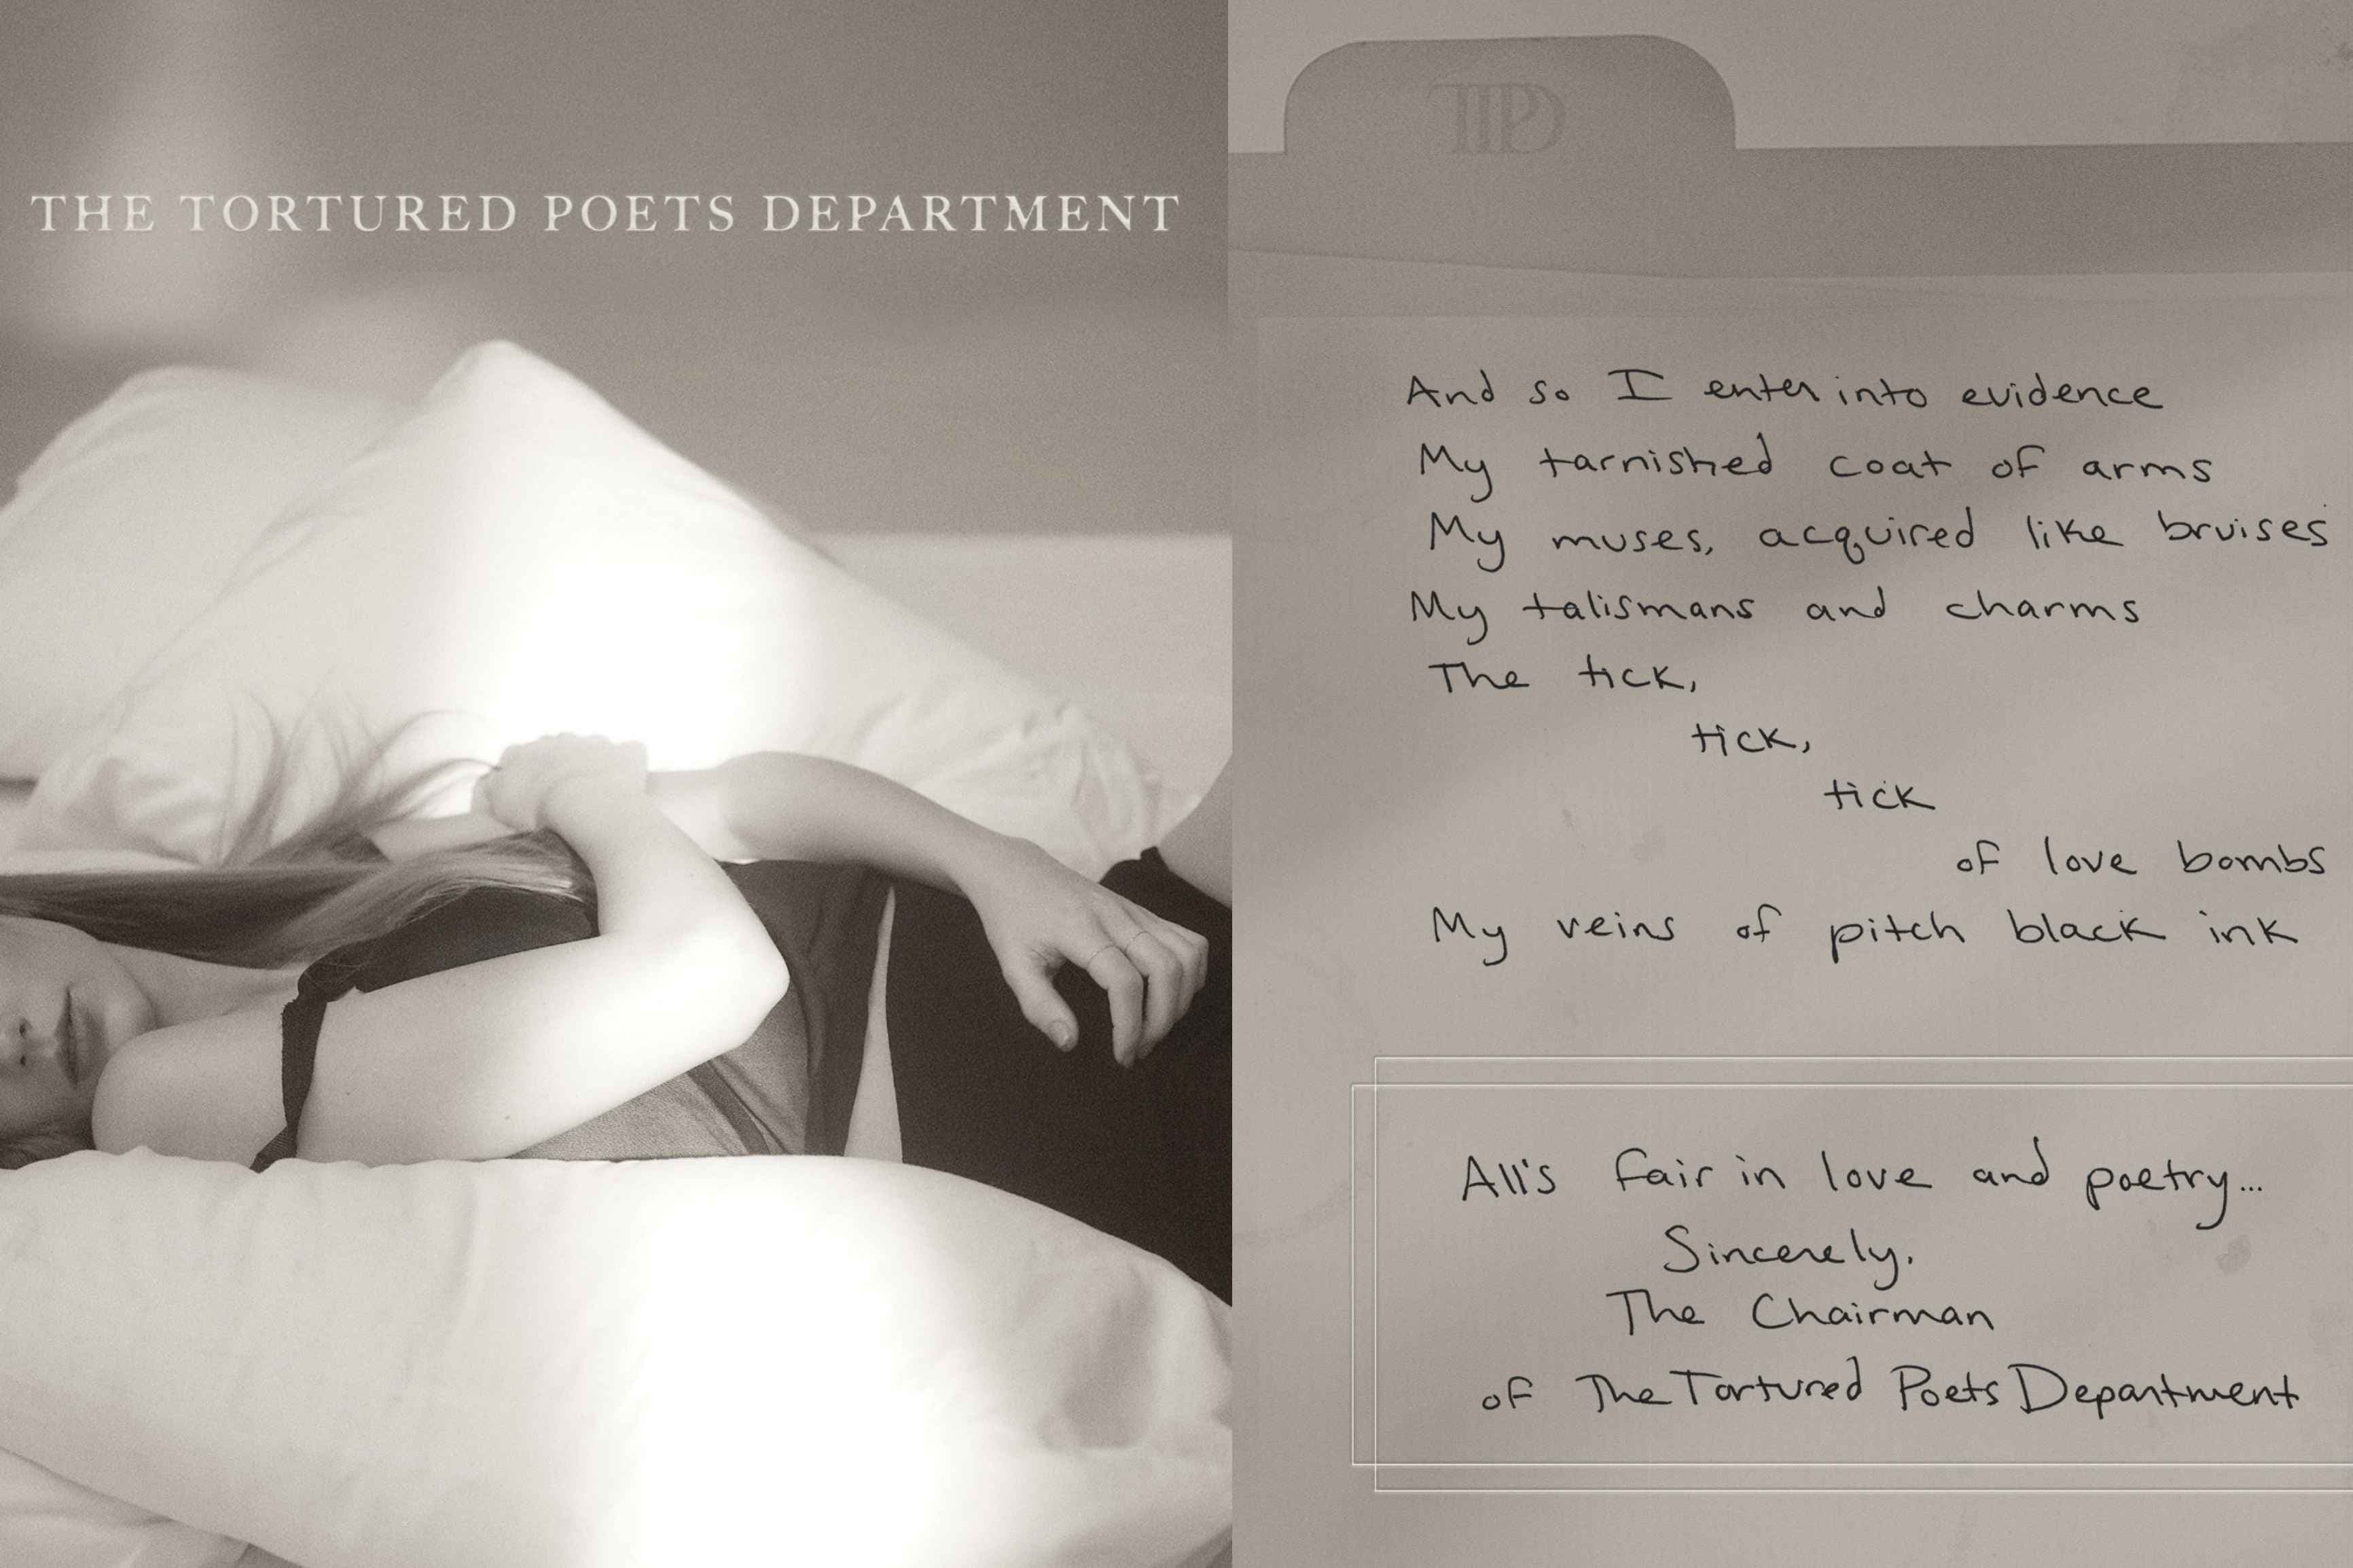 THE TORTURED POETS DEPARTMENT
TTPD
And so I enter into evidence
My tarnished coat of arms
My muses, acquired like bruises
My talismans and charms
The tick,
tick,
tick
of love bombs
My veins of pitch black ink
All's fair in love and poetry...
Sincerely,
The Chairman
of The Tortured Poets Department